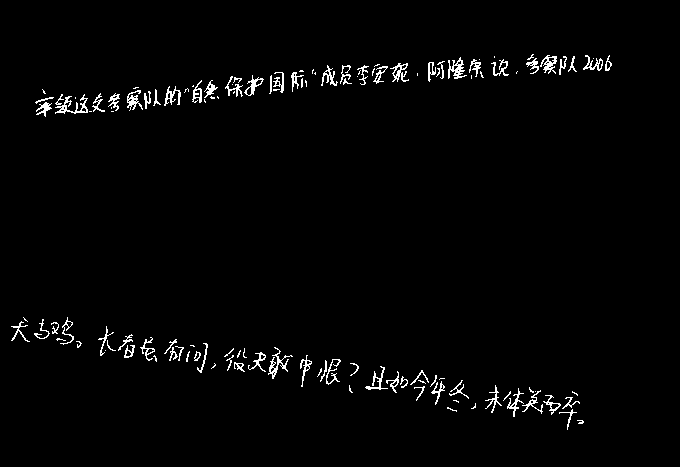 率领这支考察队的“自然保护国际”成员李安妮·阿隆索说,考察队2006
犬与鸡。长者虽有问,役夫敢申恨?且如今年冬,未休关西卒。